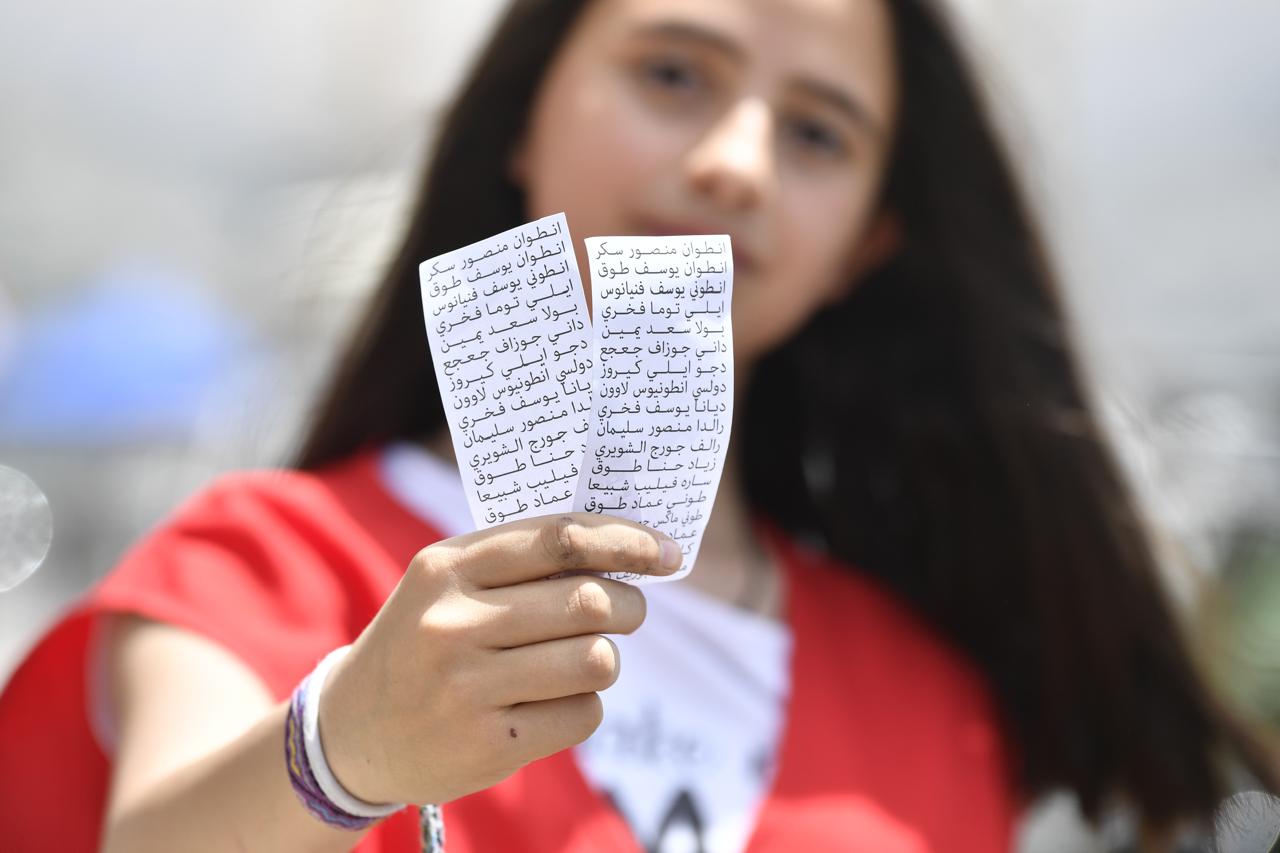 انطوان منصور سكر
انطوان يوسف طوق
انطوني يوسف فنيانوس
ايلي توما فخري
بولا سعد يمين
داني جوزاف جعجع
دجو ايلي كيروز
دولسي انطونيوس لاوون
يانا يوسف فخري
دا منصور سليمان
ف جورج الشويري
حنا طوق
فيليب شبيعا
عماد طوق
انطوان منصور سكر
انطوان يوسف طوق
انطوني يوسف فنيانوس
ايلي توما فخري
بولا سعد يمين
داني جوزاف جعجع
دجو ايلي كيروز
دولسي انطونيوس لاوون
ديانا يوسف فخري
رالدا منصور سليمان
رالف جورج الشويري
زياد حنا طوق
ساره فيليب شبيعا
طوني عماد طوق
طوني ماكس
عماد